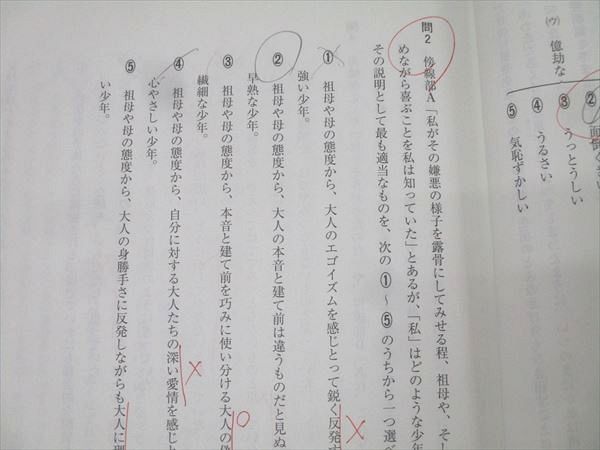 (ウ) 億劫な
②
③ うっとうしい
④ うるさい
⑤ 気恥ずかしい
問2 傍線部A「私がその嫌悪の様子を露骨にしてみせる程、祖母や、そし
めながら喜ぶことを私は知っていた」とあるが、「私」はどのような少年
その説明として最も適当なものを、次の①～⑤のうちから一つ選べ
① 祖母や母の態度から、大人のエゴイズムを感じとって鋭く反発す
強い少年。
② 祖母や母の態度から、大人の本音と建て前は違うものだと見ぬ
早熟な少年。
③ 祖母や母の態度から、本音と建て前を巧みに使い分ける大人の
繊細な少年。
④ 祖母や母の態度から、自分に対する大人たちの深い愛情を感じと
心やさしい少年。
⑤ 祖母や母の態度から、大人の身勝手さに反発しながらも大人に
い少年。